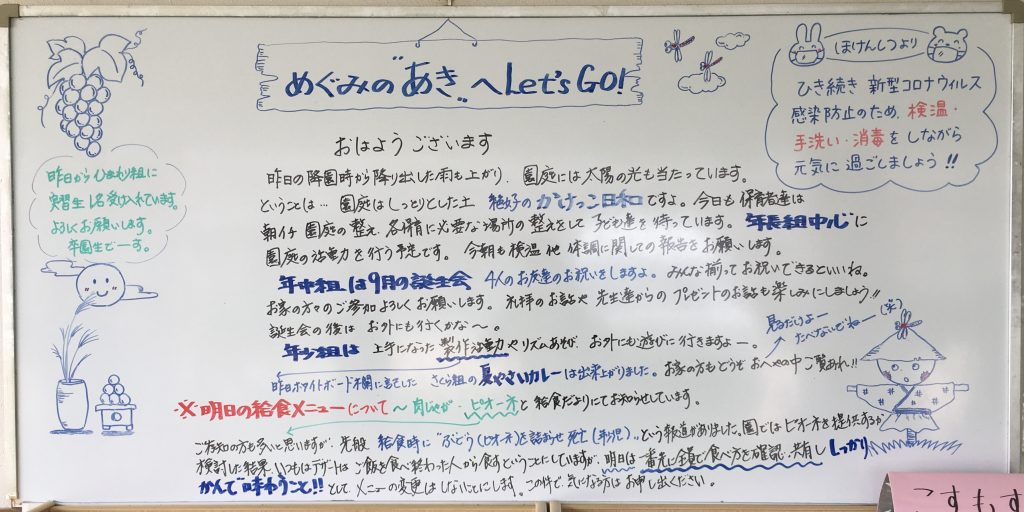 めぐみの"あき"へLet's GO!
ほけんしつより
ひき続き 新型コロナウィルス
感染防止のため、検温・
手洗い・消毒をしながら
元気に過ごしましょう!!
おはようございます
昨日からひまわり組に
実習生1名受け入れています。
よろしくお願いします。
卒園生でーす。
昨日の降園時から降り出した雨も上がり、園庭には太陽の光も当たっています。
ということは… 園庭はしっとりとした土 絶好のかけっこ日和ですよ。今日も保育者達は
朝イチ 園庭の整え、各保育に必要な場所の整えをして 子ども達を待っています。年長組中心に
園庭の活動を行う予定です。今朝も検温他 体調に関しての報告をお願いします。
年中組は9月の誕生会 4人のお友達のお祝いをしますよ。みんな揃ってお祝いできるといいね。
お家の方々のご参加よろしくお願いします。礼拝のお話や先生達からのプレゼントのお話も楽しみにしましょう!!
誕生会の後は お外にも行くかな〜。
見るだけよー
たべないでねー (米)
年少組は 上手になった製作活動やリズムあそび、お外にも遊びに行きますよー。
昨日ホワイトボード下欄に書きました さくら組の夏やさいカレーは出来上がりました。お家の方もどうぞ おへやの中ご覧あれ!!
※明日の給食メニューについて 〜肉じゃが・ピオーネと給食だよりにてお知らせしています。
ご存知の方も多いと思いますが、先般 給食時に"ぶどう(ピオーネ)を詰まらせ死亡(4歳児)"という報道がありました。園ではピオーネを提供するか
検討した結果、いつもはデザートは ご飯を食べ終わった人から食すということにしていますが、明日は一番先に全員で食べ方を確認、共有し しっかり
かんで味わうこと!! として、メニューの変更はしないことにします。この件で、気になる方はお申し出ください。
こすもす